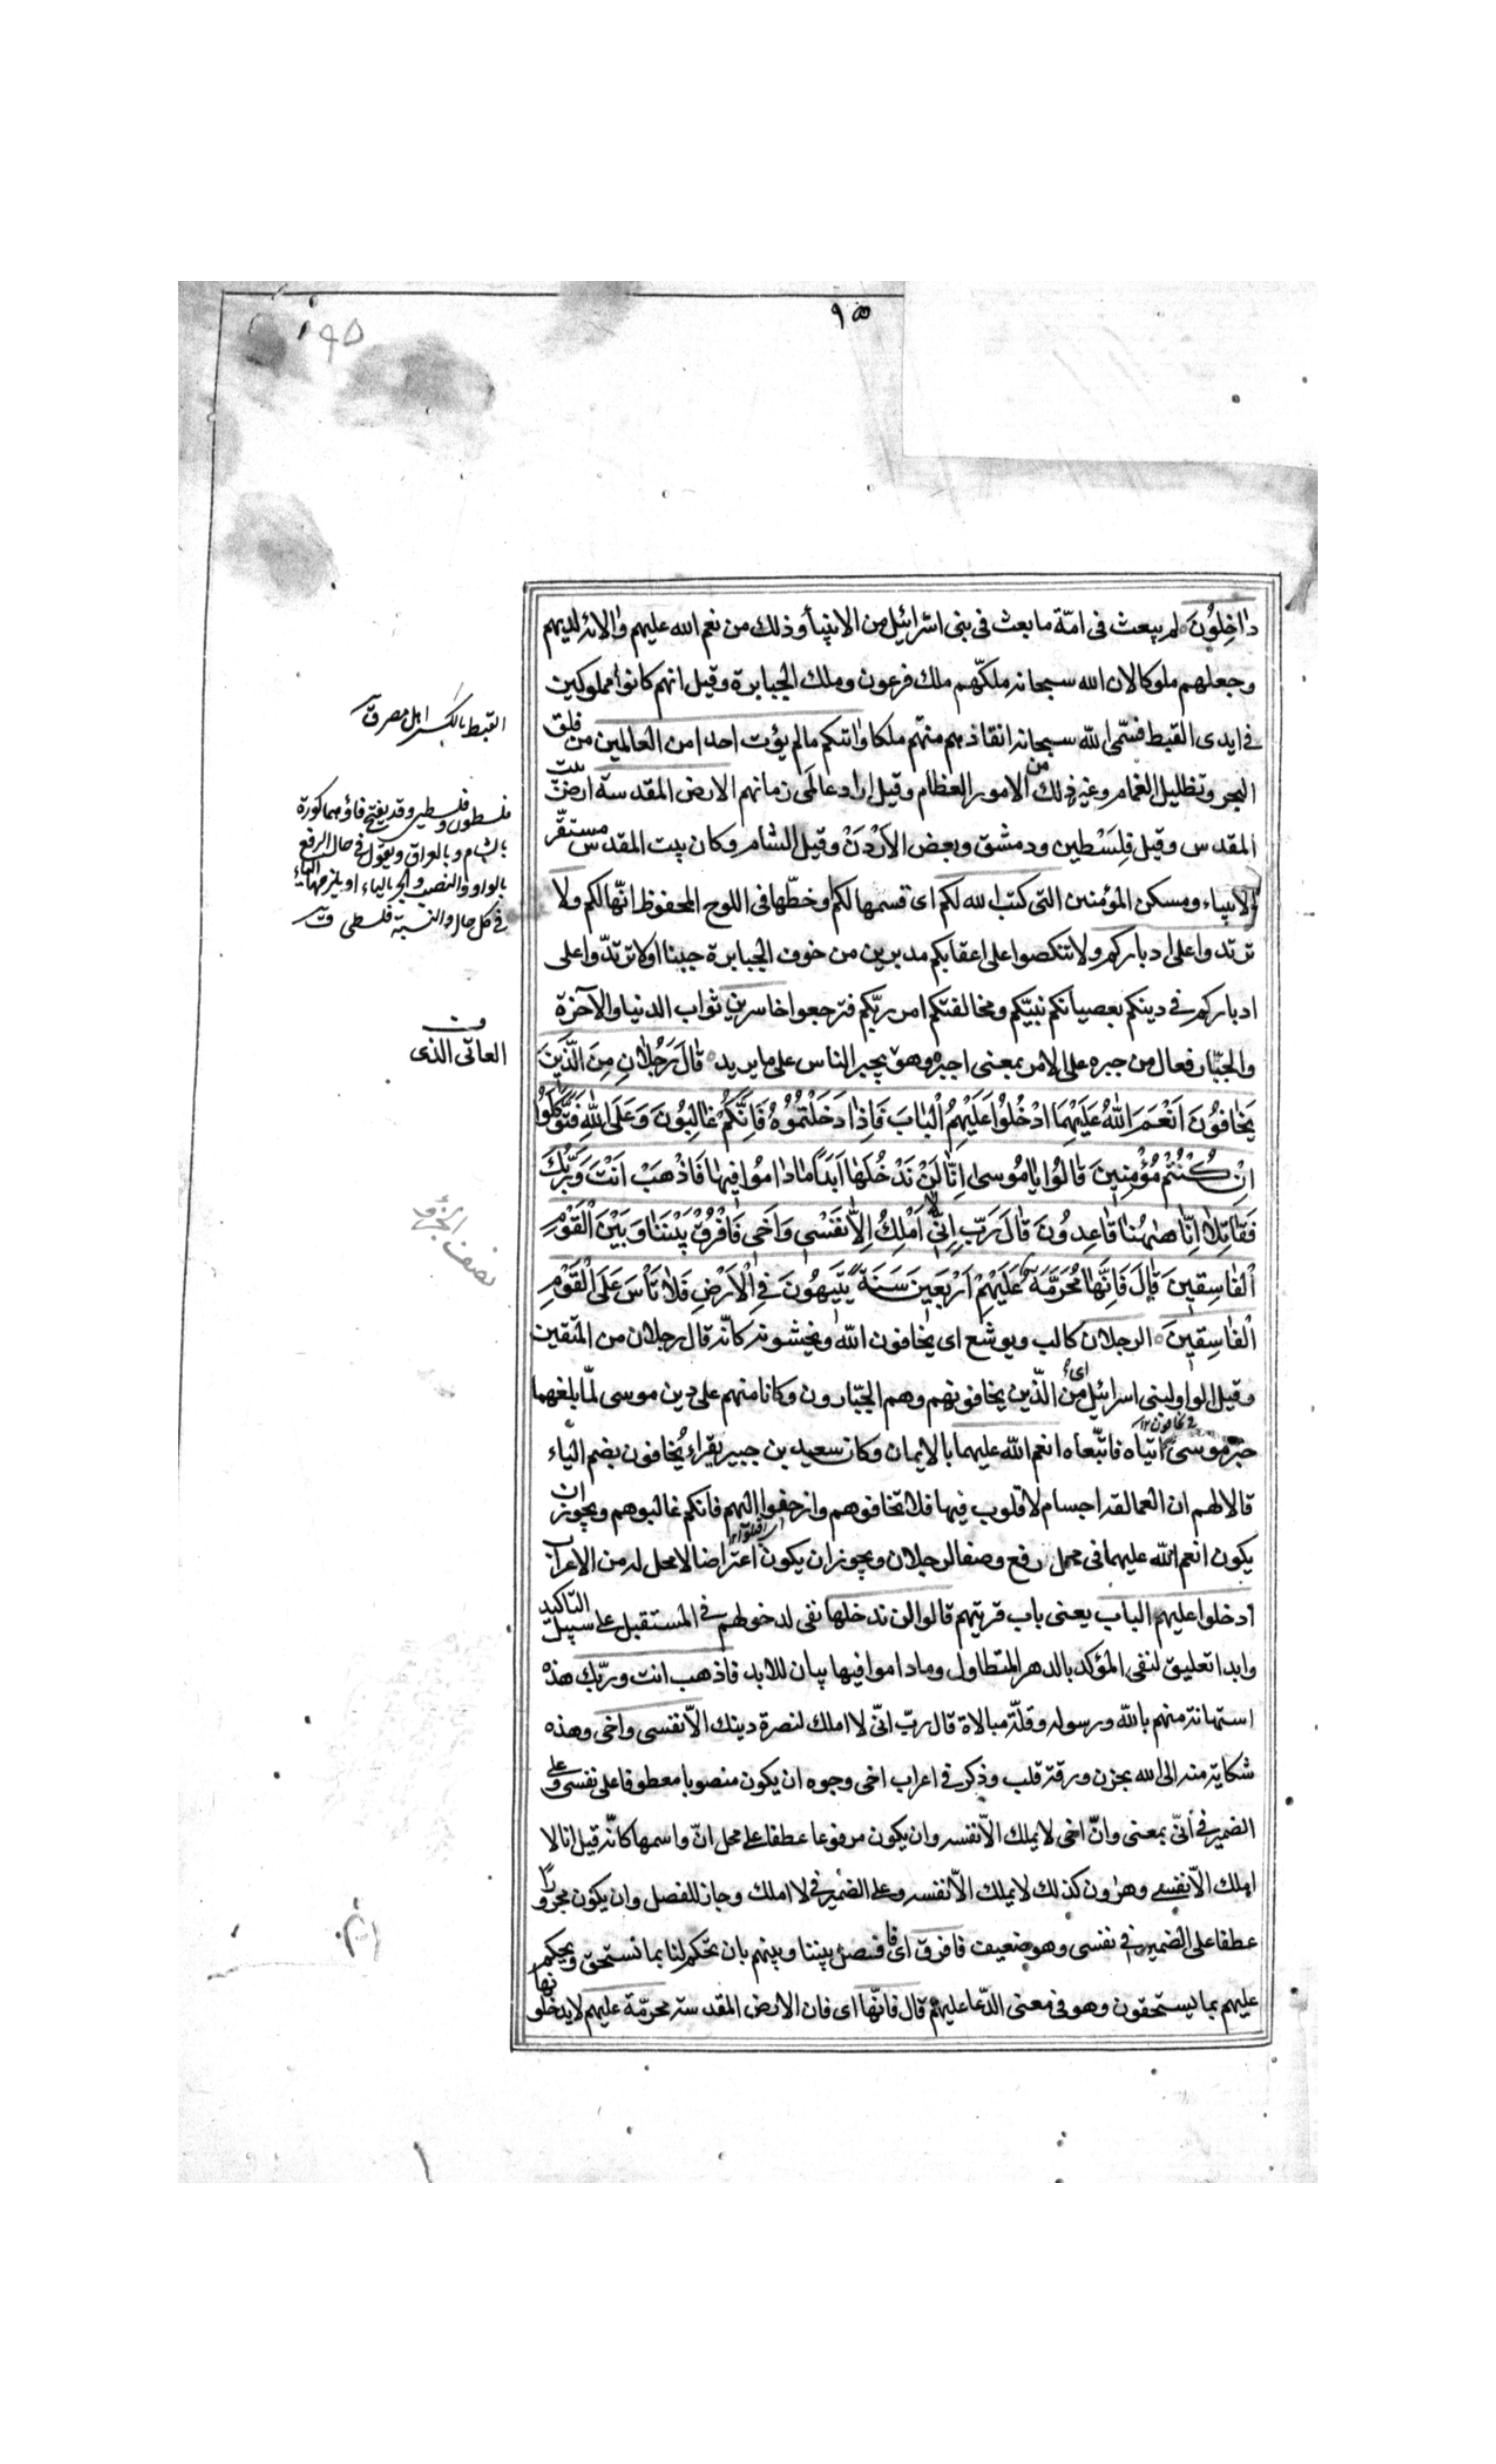 ٩٥
٩٥
دٰاخِلُونَ لم يبعث فى امّة ما بعث فى بنى اسرائيل من الانبيآء وذلك من نعم الله عليهم والائه لديهم
وجعلهم ملوكا لان الله سبحانه ملكّهم ملك فرعون وملك الجبابرة وقيل انهم كانوا مملوكين
فى ايدى القبط فسمّى الله سبحانه انقاذهم منهم ملكا واتٰكم مالم يؤت احدا من العالمين من فلق
البحر وتظليل الغمام وغير ذلك من الامور العظام وقيل اراد عالمَى زمانهم الارض المقدسة ارض بيت
المقدس وقيل فِلَسْطين ودمشق وبعض الاُرْدَنّ وقيل الشام وكان بيت المقدس مستقرّ
الانبياء ومسكن المؤمنين التى كتب الله لكم اى قسمها لكم وخطّها فى اللوح المحفوظ انّها لكم ولا
ترتدوا على ادباركم ولا تنكصوا على اعقابكم مدبرين من خوف الجبابرة جبنا او لا ترتدّوا على
ادباركم فى دينكم بعصيانكم نبيّكم ومخالفتكم امر ربّكم فترجعوا خاسرين ثواب الدنيا والآخرة
والجبّار فعال من جبره على الامر بمعنى اجبره وهو يجبر الناس على ما يريد قٰالَ رَجُلٰانِ مِنَ الَّذِينَ
يَخٰافُونَ اَنْعَمَ اللّٰهُ عَلَيْهِمَا ادْخُلُوا عَلَيْهِمُ الْبٰابَ فَاِذٰا دَخَلْتُمُوهُ فَاِنَّكُمْ غٰالِبُونَ وَعَلَى اللّٰهِ فَتَوَكَّلُوا
اِنْ كُنْتُمْ مُؤْمِنِينَ قٰالُوا يٰا مُوسىٰ اِنّٰا لَنْ نَدْخُلَهٰا اَبَدًا مٰا دٰامُوا فِيهٰا فَاذْهَبْ اَنْتَ وَرَبُّكَ
فَقٰاتِلٰا اِنّٰا هٰهُنٰا قٰاعِدُونَ قٰالَ رَبِّ اِنِّى لٰا اَمْلِكُ اِلّٰا نَفْسِى وَاَخِى فَافْرُقْ بَيْنَنٰا وَبَيْنَ الْقَوْمِ
الْفٰاسِقِينَ قٰالَ فَاِنَّهٰا مُحَرَّمَةٌ عَلَيْهِمْ اَرْبَعِينَ سَنَةً يَتِيهُونَ فِى الْاَرْضِ فَلٰا تَأْسَ عَلَى الْقَوْمِ
الْفٰاسِقِينَ الرجلان كالب ويوشع اى يخافون الله ويخشونه كانّه قال رجلان من المتقين
وقيل الواو لبنى اسرائيل اى من الّذين يخافونهم وهم الجبّارون وكانا منهم على دين موسى لمّا بلغهما
خبر موسى اتياه فاتّبعاه انعم الله عليهما بالايمان وكان سعيد بن جبير يقراء يُخافون بضم الياء
قالا لهم ان العمالقة اجسام لا قلوب فيها فلا تخافوهم وازحفوا اليهم فانكم غالبوهم ويجوز ان
يكون انعم الله عليهما فى محل رفع وصفا لرجلان ويجوز ان يكون اعتراضا لا محل له من الاعراب
ادخلوا عليهم الباب يعنى باب قريتهم قالوا لن ندخلها نفى لدخولهم فى المستقبل على سبيل التأكيد
وابدا تعليق لنفى المؤكد بالدهر المتطاول وماداموا فيها بيان للابد فاذهب انت وربّك هذه
استهانة منهم بالله ورسوله وقلّة مبالاة قال ربّ انّى لا املك لنصرة دينك الّا نفسى واخى وهذه
شكاية منه الى الله بحزن ورقة قلب وذكر فى اعراب اخى وجوه ان يكون منصوبا معطوفا على نفسى وعلى
الضمير فى انّى بمعنى وانّ اخى لا يملك الّا نفسه وان يكون مرفوعا عطفا على محل انّ واسمها كانّه قيل انا لا
املك الّا نفسى وهرٰون كذلك لا يملك الّا نفسه وعلى الضمير فى لا املك وجاز للفصل وان يكون مجرورًا
عطفا على الضمير فى نفسى وهو ضعيف فافرق اى فافصل بيننا وبينهم بان تحكم لنا بما نستحق وتحكم
عليهم بما يستحقون وهو فى معنى الدّعا عليهم قال فانّها اى فان الارض المقدسة محرّمة عليهم لا يدخلونها
القبط بالكسر اهل مصر ق
فلسطون وفلسطين وقد يفتح فاؤهما كورة
بالشام و بالعراق وتقول فى حال الرفع
بالواو والنصب والجر بالياء او يلزمها الياء
فى كل حال والنسبة فلسطى ق
العاتى الذى
نصف الجزو